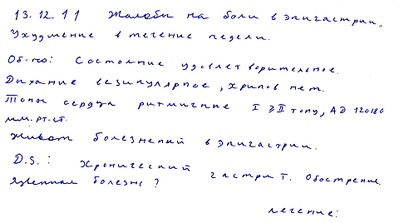 13.12.11 Жалобы на боли в эпигастрии,
Ухудшение в течение недели.
Об-но: Состояние удовлетворительное.
Дыхание везикулярное, хрипов нет.
Тоны сердца ритмичные I > II тону, АД 120/80
мм.рт.ст.
Живот болезнений в эпигастрии.
D.S.: Хронический гастрит. Обострение.
Язвенная болезнь?
лечение: